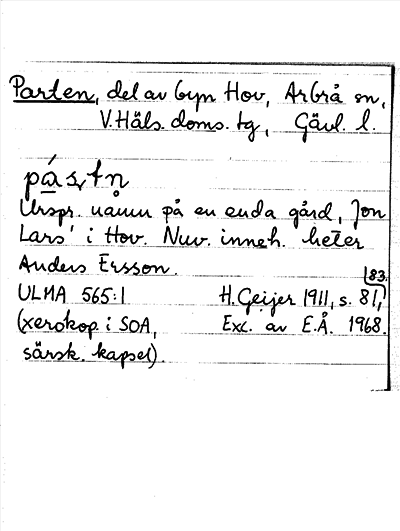 Parten, del av byn Hov, Arbrå sn,
V.Häls. doms. tg, Gävl. l.
pás,tn
Urspr. namn på en enda gård, Jon
Lars' i Hov. Nuv. inneh. heter
Anders Ersson.
ULMA 565:1 H. Geijer 1911, s. 81, 83.
(xerokop. i SOA, Exc. av E.Å. 1968.
särsk. kapsel).